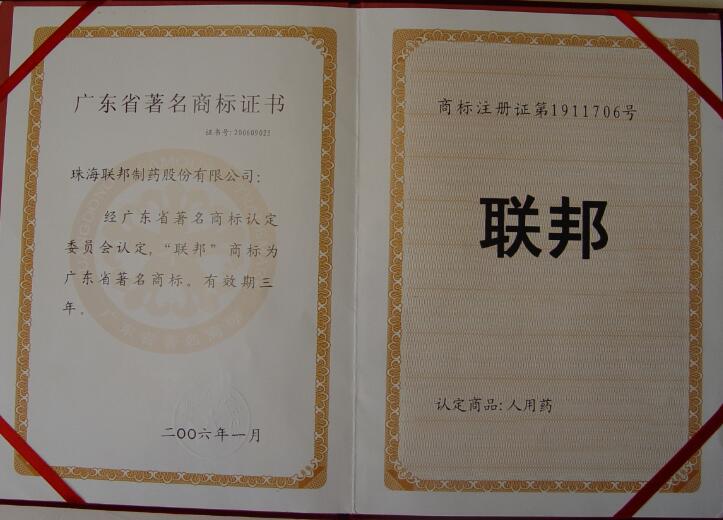 广东省著名商标证书
证书号:200609023
珠海联邦制药股份有限公司:
经广东省著名商标认定
委员会认定,“联邦”商标为
广东省著名商标。有效期三
年。
二〇〇六年一月
商标注册证第1911706号
联邦
认定商品:人用药